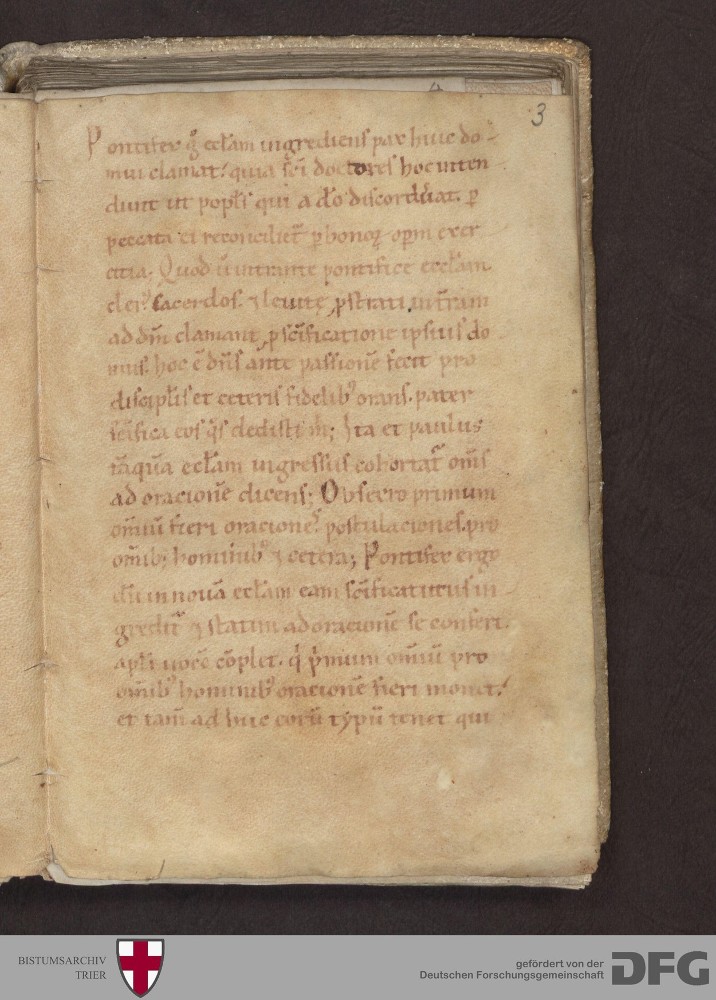 3
Pontifex g̊ eccl̄am ingrediens pax huic do-
mui clamat. quia sc̄i doctores hoc inten
dunt ut popl̄s qui a d̄o discordūat. p̱
peccata ei reconciliet᷑ p̱ honoꝝ opm̄ exer
citia. Quod ū intrante pontifice eccl̄am
cler᷒ sacerdos. ⁊ levite p̱strati in t̄ram
ad dn̄m clamant p̱ sc̄ificatione ipsius do
mus. hoc ē dn̄s ante passionē fecit pro
discipl̄is et ceteris fidelib᷒ orans. pater
sc̄ifica eos q̄s dedisti m̄; Ita et paulus
tāquā eccl̄am ingressus cohortat᷑ om̄s
ad oracionē dicens; Obsecro primum
om̄iū fieri oracione᷒ postulaciones. pro
om̄ib; hominib᷒ ⁊ cetera; Pontifex ergo
dū in novā eccl̄am eam sc̄ificaturus in
gredit᷑ ⁊ statim ad oracionē se confert.
apl̄i uocē cōplet. q̇ p̄mum om̄iū pro
om̄ib᷒ hominib᷒ oracionē fieri monet.
et tam̄ ad huc eorū typū tenet qui
BISTUMSARCHIV
TRIER
gefördert von der
Deutschen Forschungsgemeinschaft
DFG